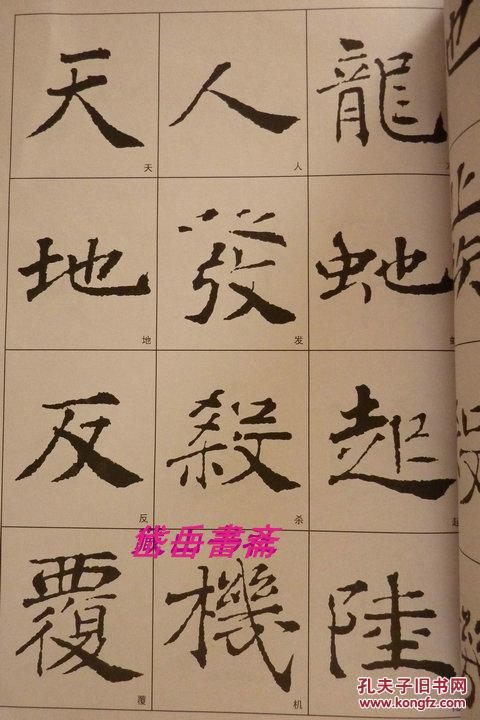 龍蛇起陸
起
人發殺機
人
发
杀
机
天地反覆
天
地
反
覆
孔夫子旧书网